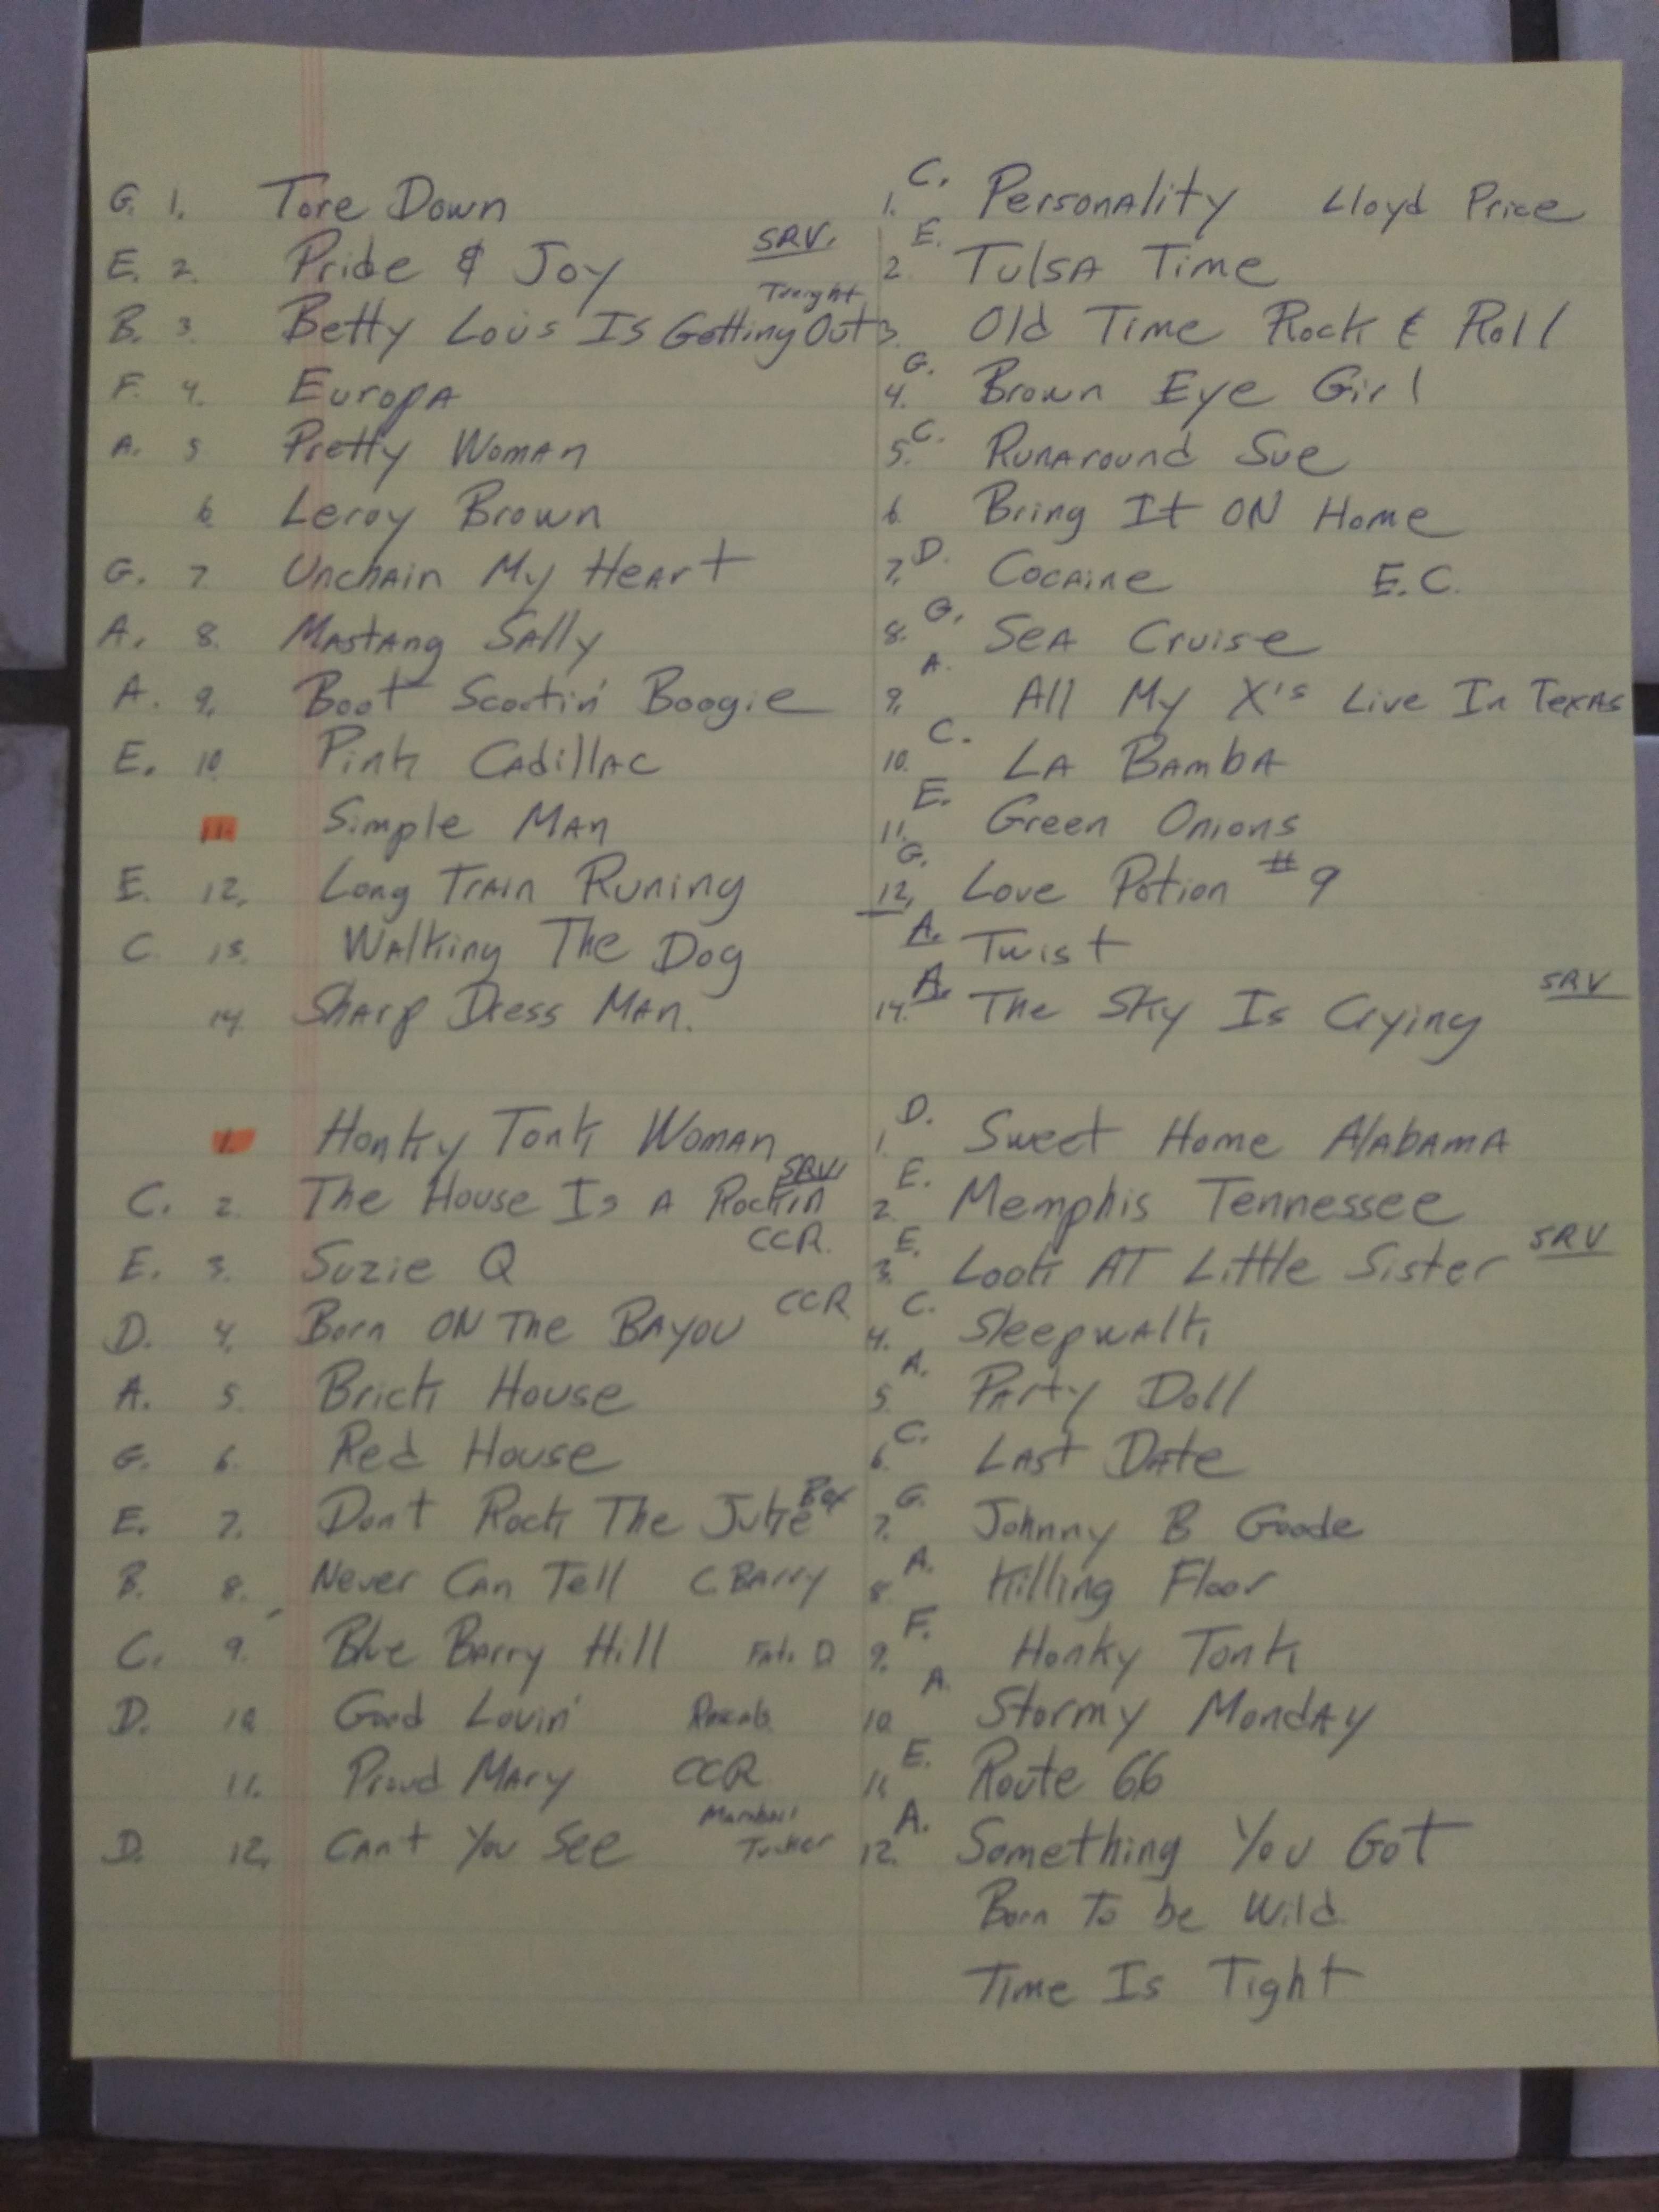 G. 1. Tore Down
E. 2. Pride & Joy SRV.
B. 3. Betty Lous Is Getting Out Tonight
F. 4. Europa
A. 5 Pretty Woman
6 Leroy Brown
G. 7 Unchain My Heart
A. 8. Mastang Sally
A. 9. Boot Scootin' Boogie
E. 10 Pink Cadillac
11. Simple Man
E. 12. Long Train Runing
C 13. Walking The Dog
14 Sharp Dress Man.
1. Honky Tonk Woman
C. 2. The House Is A Rockin SRV
E. 3. Suzie Q CCR.
D. 4. Born ON The Bayou CCR
A. 5. Brick House
G. 6. Red House
E. 7. Dont Rock The Juke Box
B. 8. Never Can Tell C Barry
C. 9. Blue Barry Hill Fats D
D. 10 Good Lovin'
11. Proud Mary CCR
D. 12. Cant You See Marshall Tucker
1. C. Personality Lloyd Price
2. E. Tulsa Time
3. Old Time Rock & Roll
4. G. Brown Eye Girl
5. C. Runaround Sue
6. Bring It ON Home
7. D. Cocaine E.C.
8. G. Sea Cruise
9. A. All My X's Live In Texas
10. C. La Bamba
11. E. Green Onions
12. G. Love Potion #9
A. Twist
14. A. The Sky Is Crying SRV
1. D. Sweet Home Alabama
2. E. Memphis Tennessee
3. E. Look AT Little Sister SRV
4. C. Sleepwalk
5. A. Party Doll
6. C. Last Date
7. G. Johnny B Goode
8. A. Killing Floor
9. F. Honky Tonk
10 A. Stormy Monday
11. E. Route 66
12. A. Something You Got
Born To be Wild.
Time Is Tight